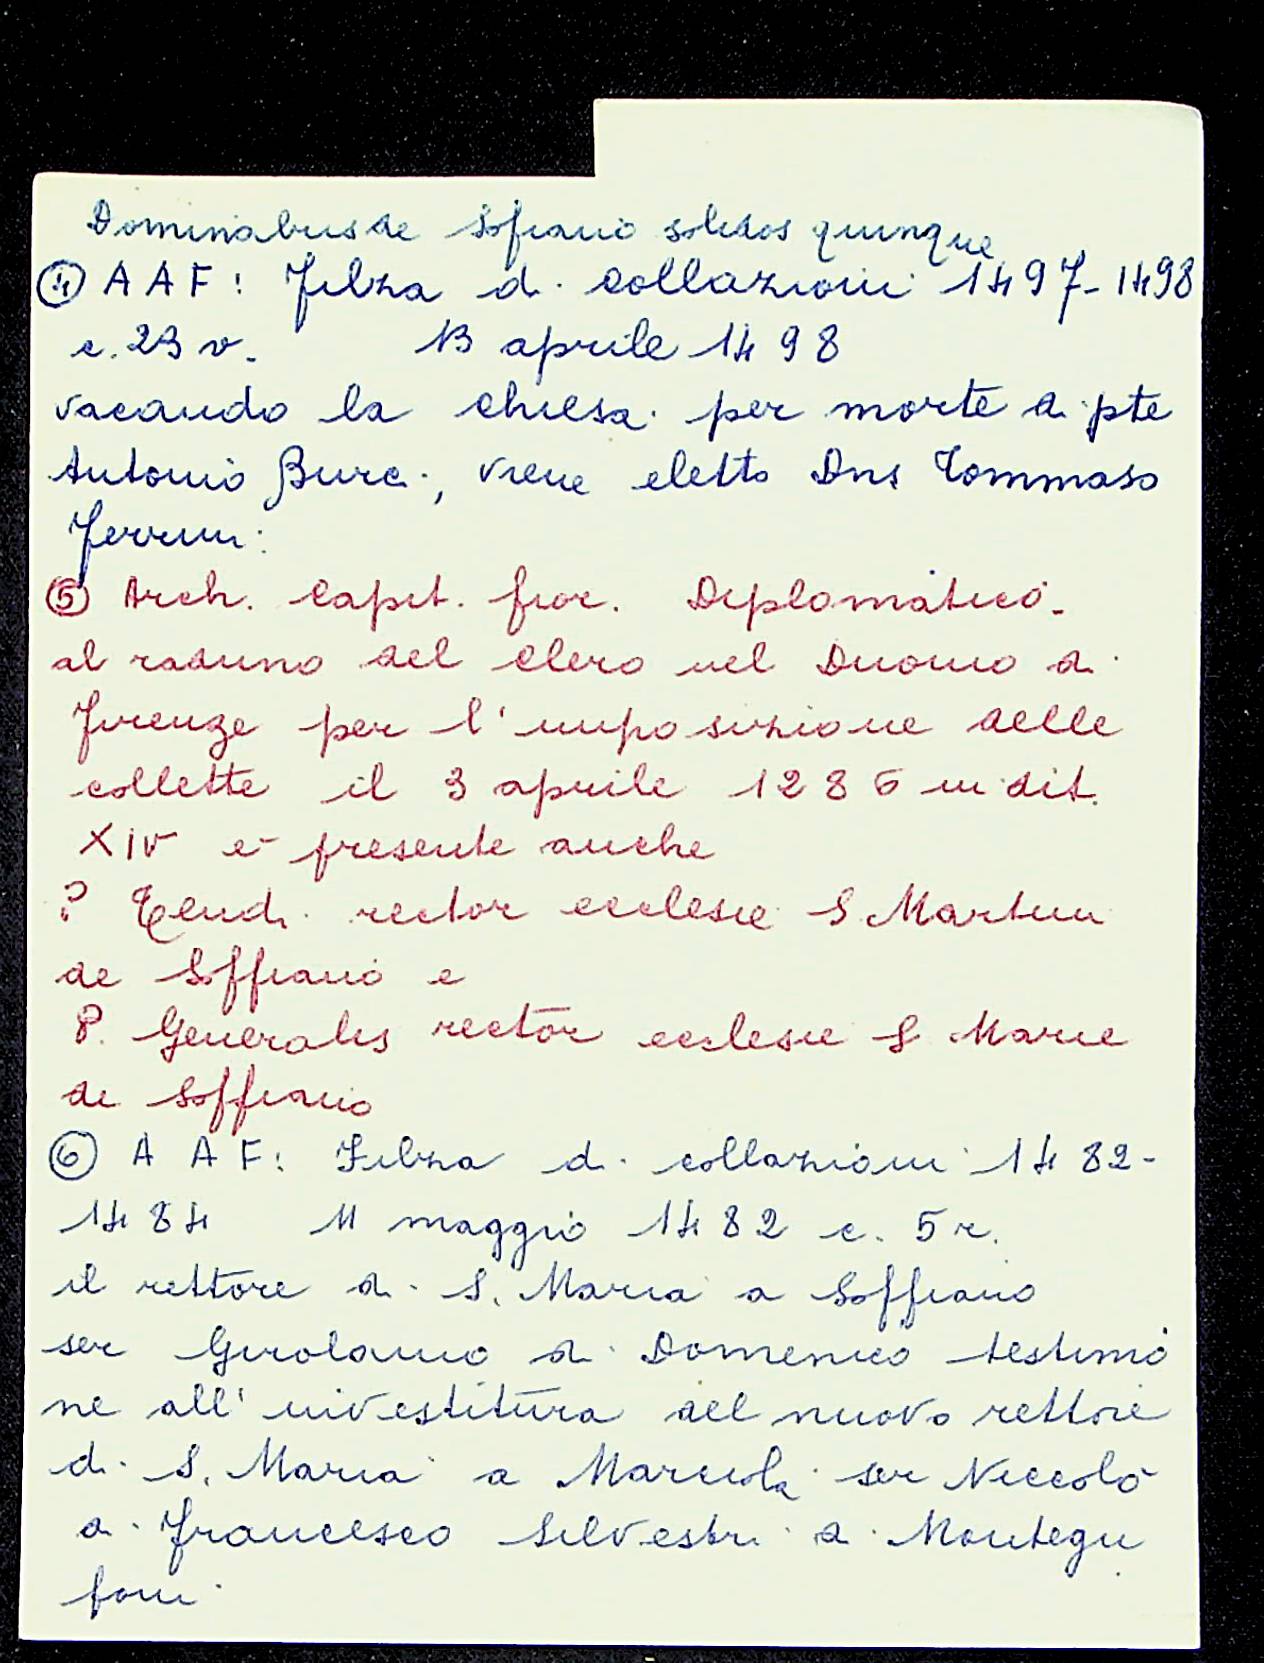 Dominabus de Sofiano solidos quinque
④ A A F: Filza di collazioni 1497-1498
c. 23 v. 13 aprile 1498
vacando la chiesa per morte di pte
Antonio Burci, viene eletto Dns Tommaso
Ferrini:
⑤ Arch. Capit. fior. Diplomatico-
al raduno del clero nel Duomo di
Firenze per l'imposizione delle
collette il 3 aprile 1286 indit.
XIV è presente anche
? rector ecclesie S Martini
de Soffiano e
P. Generalis rector ecclesie S Marie
de Soffiano
⑥ A A F: Filza di collazioni 1482-
1484 11 maggio 1482 c. 5 r.
il rettore di S. Maria a Soffiano
ser Girolamo di Domenico testimo
ne all'investitura del nuovo rettore
di S. Maria a Marciola ser Niccolò
di Francesco Silvestri di Montegu
foni